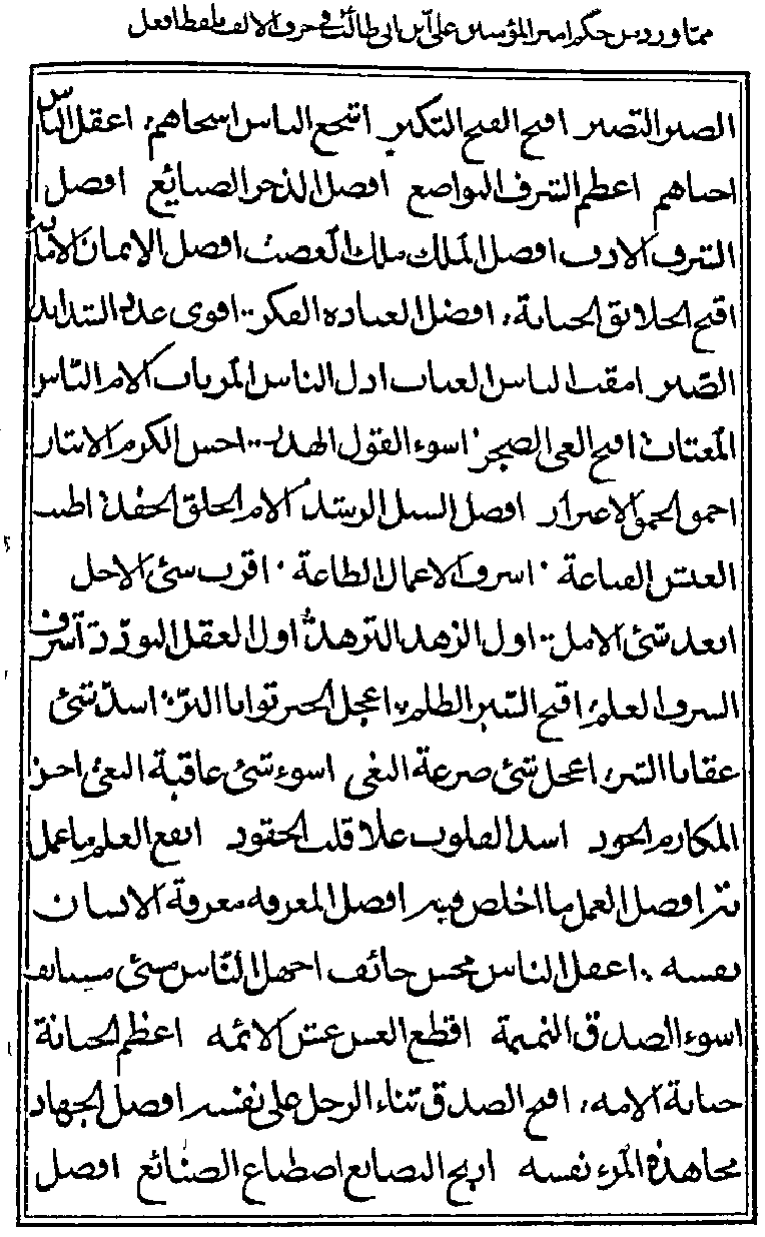 مما ورد من حكم امير المؤمنين على ابن ابى طالب فى حرف الالف بلفظ افعل
الصبر التصبر اقبح القبح التكبر اشجع الناس اسخاهم، اعقل الناس
احياهم اعظم الشرف التواضع افضل الذخر الصنائع افضل
الشرف الادب افضل الملك ملك الغضب افضل الايمان الامانة
اقبح الخلائق الخيانة، افضل العبادة الفكر اقوى عدد الشدايد
الصبر امقت الناس العياب اذل الناس المرتاب ألام الناس
المغتاب اقبح العى الضجر اسوء القول الهذر احسن الكرم الايثار
احمق الحمق الاغترار افضل السبل الرشد ألام الخلق الحقد اطيب
العيش القناعة اشرف الاعمال الطاعة اقرب شئ الاجل
ابعد شئ الامل اول الزهد التزهد اول العقل التودد اشرف
الشرف العلم اقبح السير الظلم اعجل الخير ثوابا البر اشد شئ
عقابا الشر اعجل شئ صرعة البغى اسوء شئ عاقبة الغى احسن
المكارم الجود اشد القلوب غلا قلب الحقود انفع العلم ما عمل
به افضل العمل ما اخلص فيه افضل المعرفه معرفة الانسان
نفسه اعقل الناس محسن خائف اجهل الناس مسئ مستانف
اسوء الصدق النميمة اقطع الغش غش الائمه اعظم الخيانة
خيانة الامه، اقبح الصدق ثناء الرجل على نفسه افضل الجهاد
مجاهدة المرء نفسه اربح البضايع اصطناع الصنائع افضل